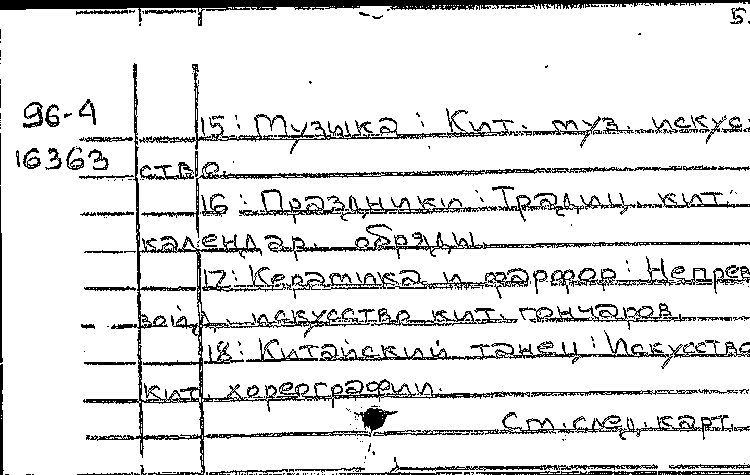 5.
96-4
16363
15: Музыка: Кит. муз. искус-
ство.
16: Праздники: Традиц. кит.
календар. обряды.
17: Керамика и фарфор: Непрев-
зойд. искусство кит. гончаров.
18: Китайский танец: Искусство
кит. хореографии.
См. след. карт.